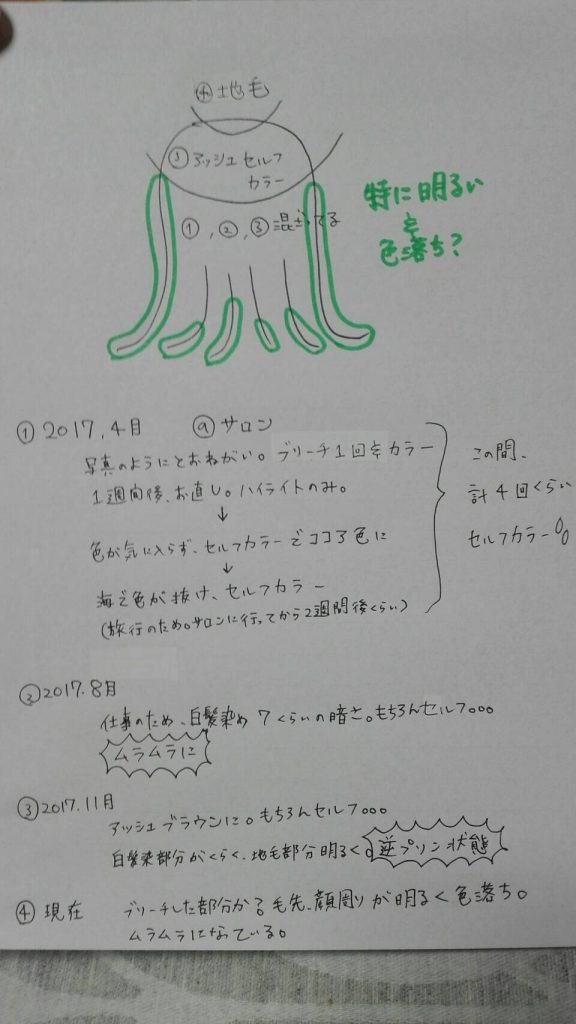 ④地毛
③アッシュセルフ
カラー
①,②,③混ざってる
特に明るい
&
色落ち?
①2017,4月 @サロン
写真のようにとおねがい。ブリーチ1回&カラー
1週間後、お直し。ハイライトのみ。
↓
色が気に入らず、セルフカラーでココア色に
↓
海で色が抜け、セルフカラー
(旅行のため。サロンに行ってから2週間後くらい)
この間、
計4回くらい
セルフカラー。。
②2017.8月
仕事のため、白髪染め7くらいの暗さ。もちろんセルフ。。。
ムラムラに
③2017.11月
アッシュブラウンに。もちろんセルフ。。。
白髪染部分がくらく、地毛部分明るく。逆プリン状態
④現在 ブリーチした部分か?毛先、顔周りが明るく色落ち。
ムラムラになっている。